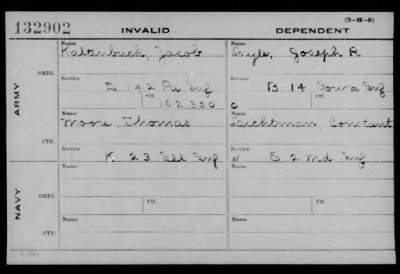 (3-H-5)
132902 INVALID DEPENDENT
Name Name
Kaltenbuch, Jacob Gayle, Joseph R
ARMY
ORIG.
Service Service
D 142 Pa Inf B 14 Iowa Inf
Ctf. Ctf.
102350 C
Name Name
Moore, Thomas Lichtman, Constant
CTF.
Service Service
K 23 Ill Inf " E 2 Md Inf
NAVY
Name Name
ORIG.
Service Ctf. Service Ctf.
Name Name
CTF.